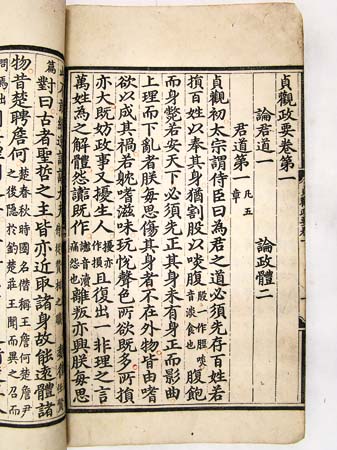 貞觀政要卷第一
論君道一　論政體二
君道第一凡五章
貞觀初太宗謂侍臣曰爲君之道必須先存百姓若
損百姓以奉其身猶割股以啖腹腹飽
而身斃若安天下必須先正其身未有身正而影曲
上理而下亂者朕每思傷其身者不在外物皆由嗜
欲以成其禍若躭嗜滋味玩悅聲色所欲既多所損
亦大既妨政事又擾生人且復出一非理之言
萬姓爲之解體怨讟既作讟音瀆痛怨也離叛亦興朕每思
篇
對曰古者聖哲之主皆亦近取諸身故能遠體諸
物昔楚聘詹何楚春秋時國名僭稱王詹何楚詹尹之後隱於釣楚莊王聞而異之召而